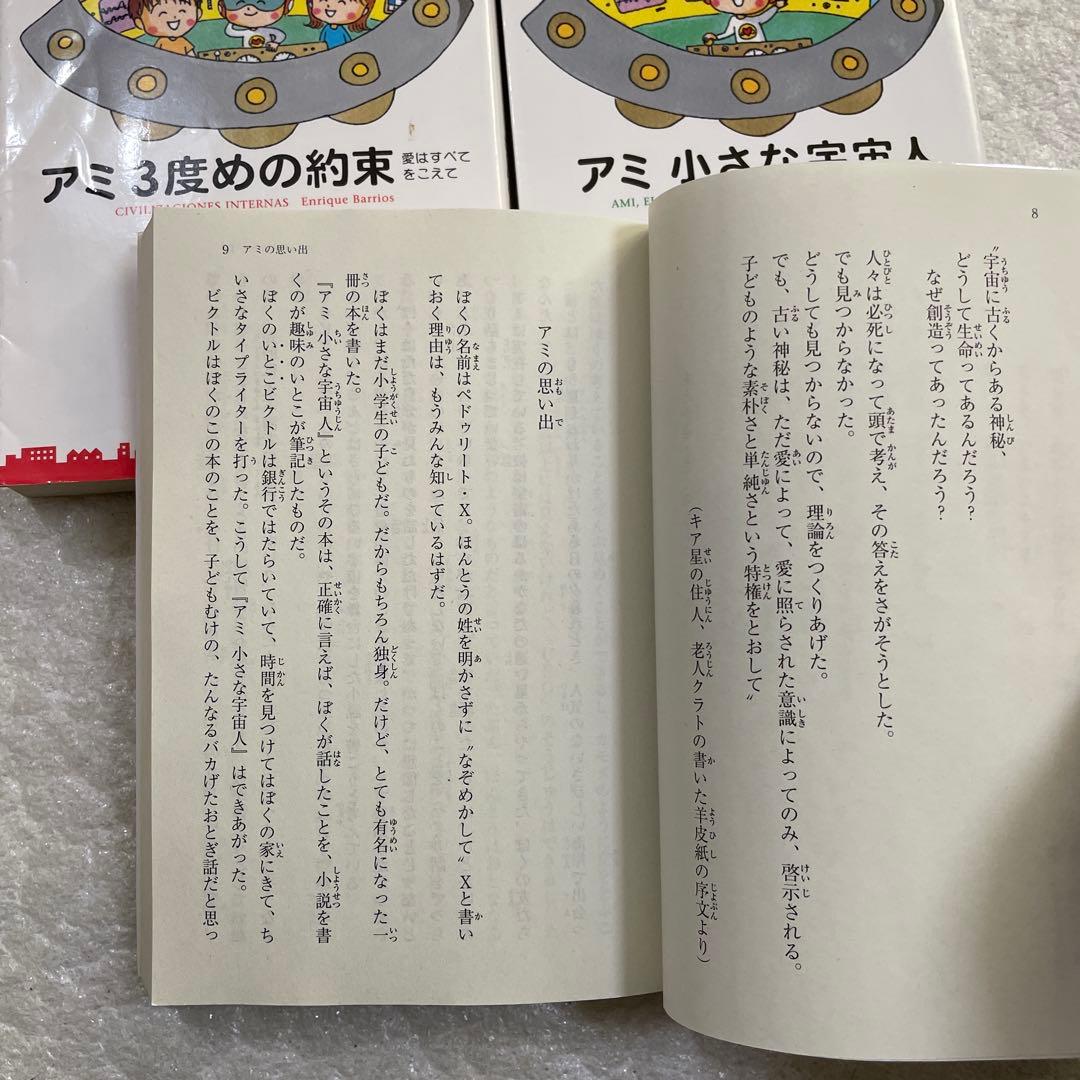 アミ 3度めの約束
愛はすべて
をこえて
CIVILIZACIONES INTERNAS Enrique Barrios
アミ 小さな宇宙人
AMI,
8
〝宇宙に古くからある神秘、
どうして生命ってあるんだろう?
なぜ創造ってあったんだろう?
人々は必死になって頭で考え、その答えをさがそうとした。
でも見つからなかった。
どうしても見つからないので、理論をつくりあげた。
でも、古い神秘は、ただ愛によって、愛に照らされた意識によってのみ、啓示される。
子どものような素朴さと単純さという特権をとおして〟
(キア星の住人、老人クラトの書いた羊皮紙の序文より)
9 アミの思い出
アミの思い出
ぼくの名前はペドゥリート・X。ほんとうの姓を明かさずに〝なぞめかして〟Xと書い
ておく理由は、もうみんな知っているはずだ。
ぼくはまだ小学生の子どもだ。だからもちろん独身。だけど、とても有名になった一
冊の本を書いた。
『アミ 小さな宇宙人』というその本は、正確に言えば、ぼくが話したことを、小説を書
くのが趣味のいとこが筆記したものだ。
ぼくのいとこビクトルは銀行ではたらいていて、時間を見つけてはぼくの家にきて、ち
いさなタイプライターを打った。こうして『アミ 小さな宇宙人』はできあがった。
ビクトルはぼくのこの本のことを、子どもむけの、たんなるバカげたおとぎ話だと思っ